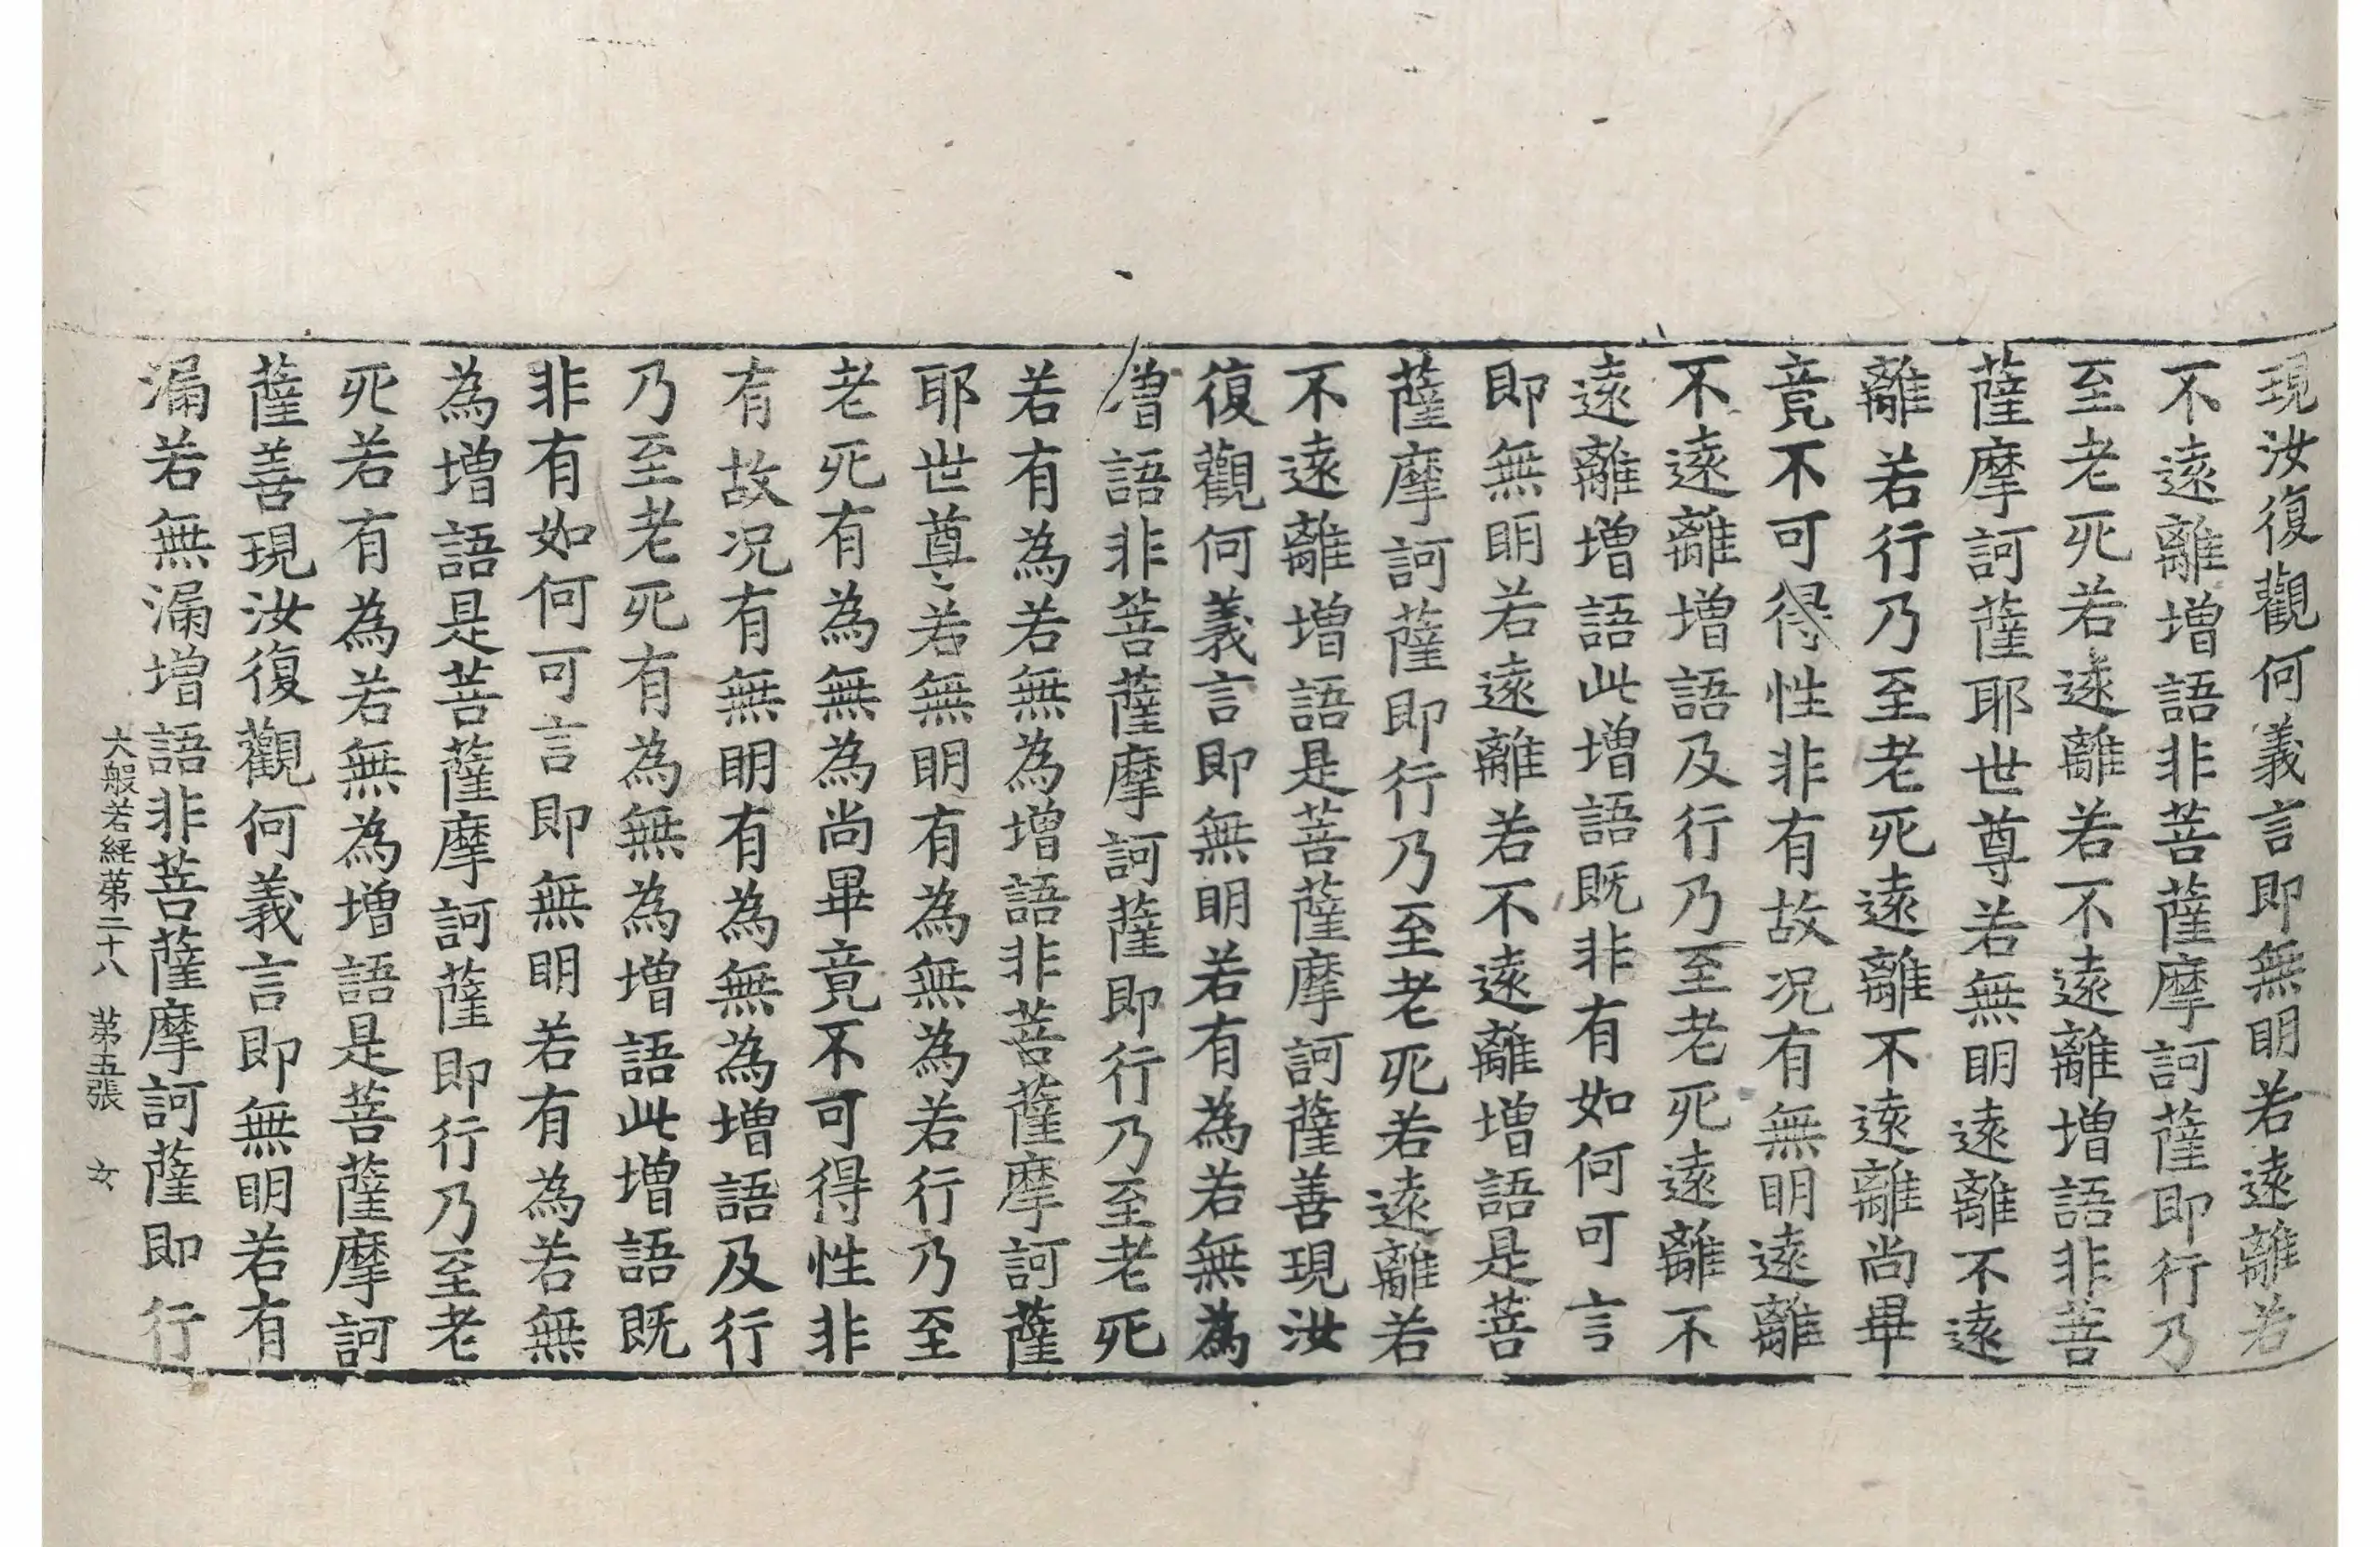 現汝復觀何義言即無明若遠離若
不遠離增語非菩薩摩訶薩即行乃
至老死若遠離若不遠離增語非菩
薩摩訶薩耶世尊若無明遠離不遠
離若行乃至老死遠離不遠離尚畢
竟不可得性非有故况有無明遠離
不遠離增語及行乃至老死遠離不
遠離增語此增語既非有如何可言
即無明若遠離若不遠離增語是菩
薩摩訶薩即行乃至老死若遠離若
不遠離增語是菩薩摩訶薩善現汝
復觀何義言即無明若有為若無為
增語非菩薩摩訶薩即行乃至老死
若有為若無為增語非菩薩摩訶薩
耶世尊若無明有為無為若行乃至
老死有為無為尚畢竟不可得性非
有故况有無明有為無為增語及行
乃至老死有為無為增語此增語既
非有如何可言即無明若有為若無
為增語是菩薩摩訶薩即行乃至老
死若有為若無為增語是菩薩摩訶
薩善現汝復觀何義言即無明若有
漏若無漏增語非菩薩摩訶薩即行
大般若經第二十八 第五張 女